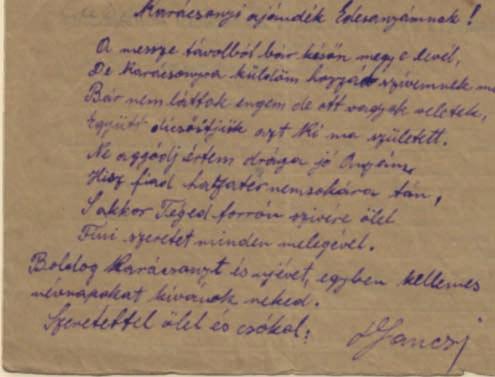 Karácsonyi ajándék Édesanyámnak!
A messze távolból bár későn megy e levél,
De Karácsonyra küldöm hozzád szivemnek
Bár nem láttok engem de ott vagyok veletek,
Együtt dicsőitjük azt Ki ma született.
Ne aggódj értem drága jó Anyám,
Hisz fiad hazatér nemsokára tán,
S akkor Téged forrón szivére ölel
Fiúi szeretet minden melegével.
Boldog Karácsonyt és ujévet, egyben kellemes
névnapokat kívánok neked.
Szeretettel ölel és csókol:
Jancsi